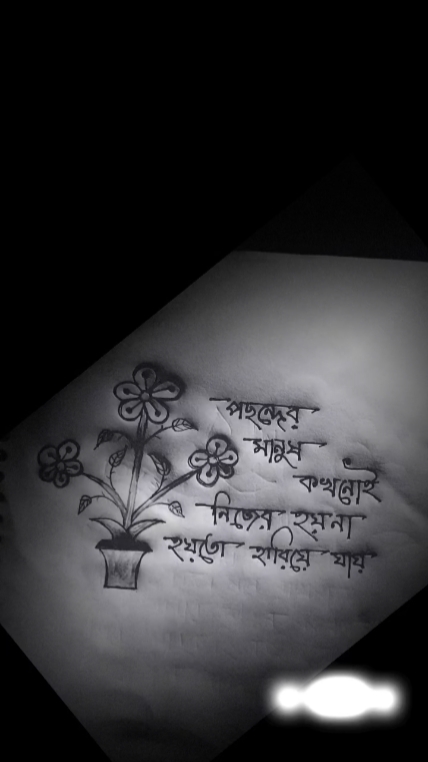 পছন্দের
মানুষ
কখনোই
নিজের হয় না
হয়তো হারিয়ে যায়